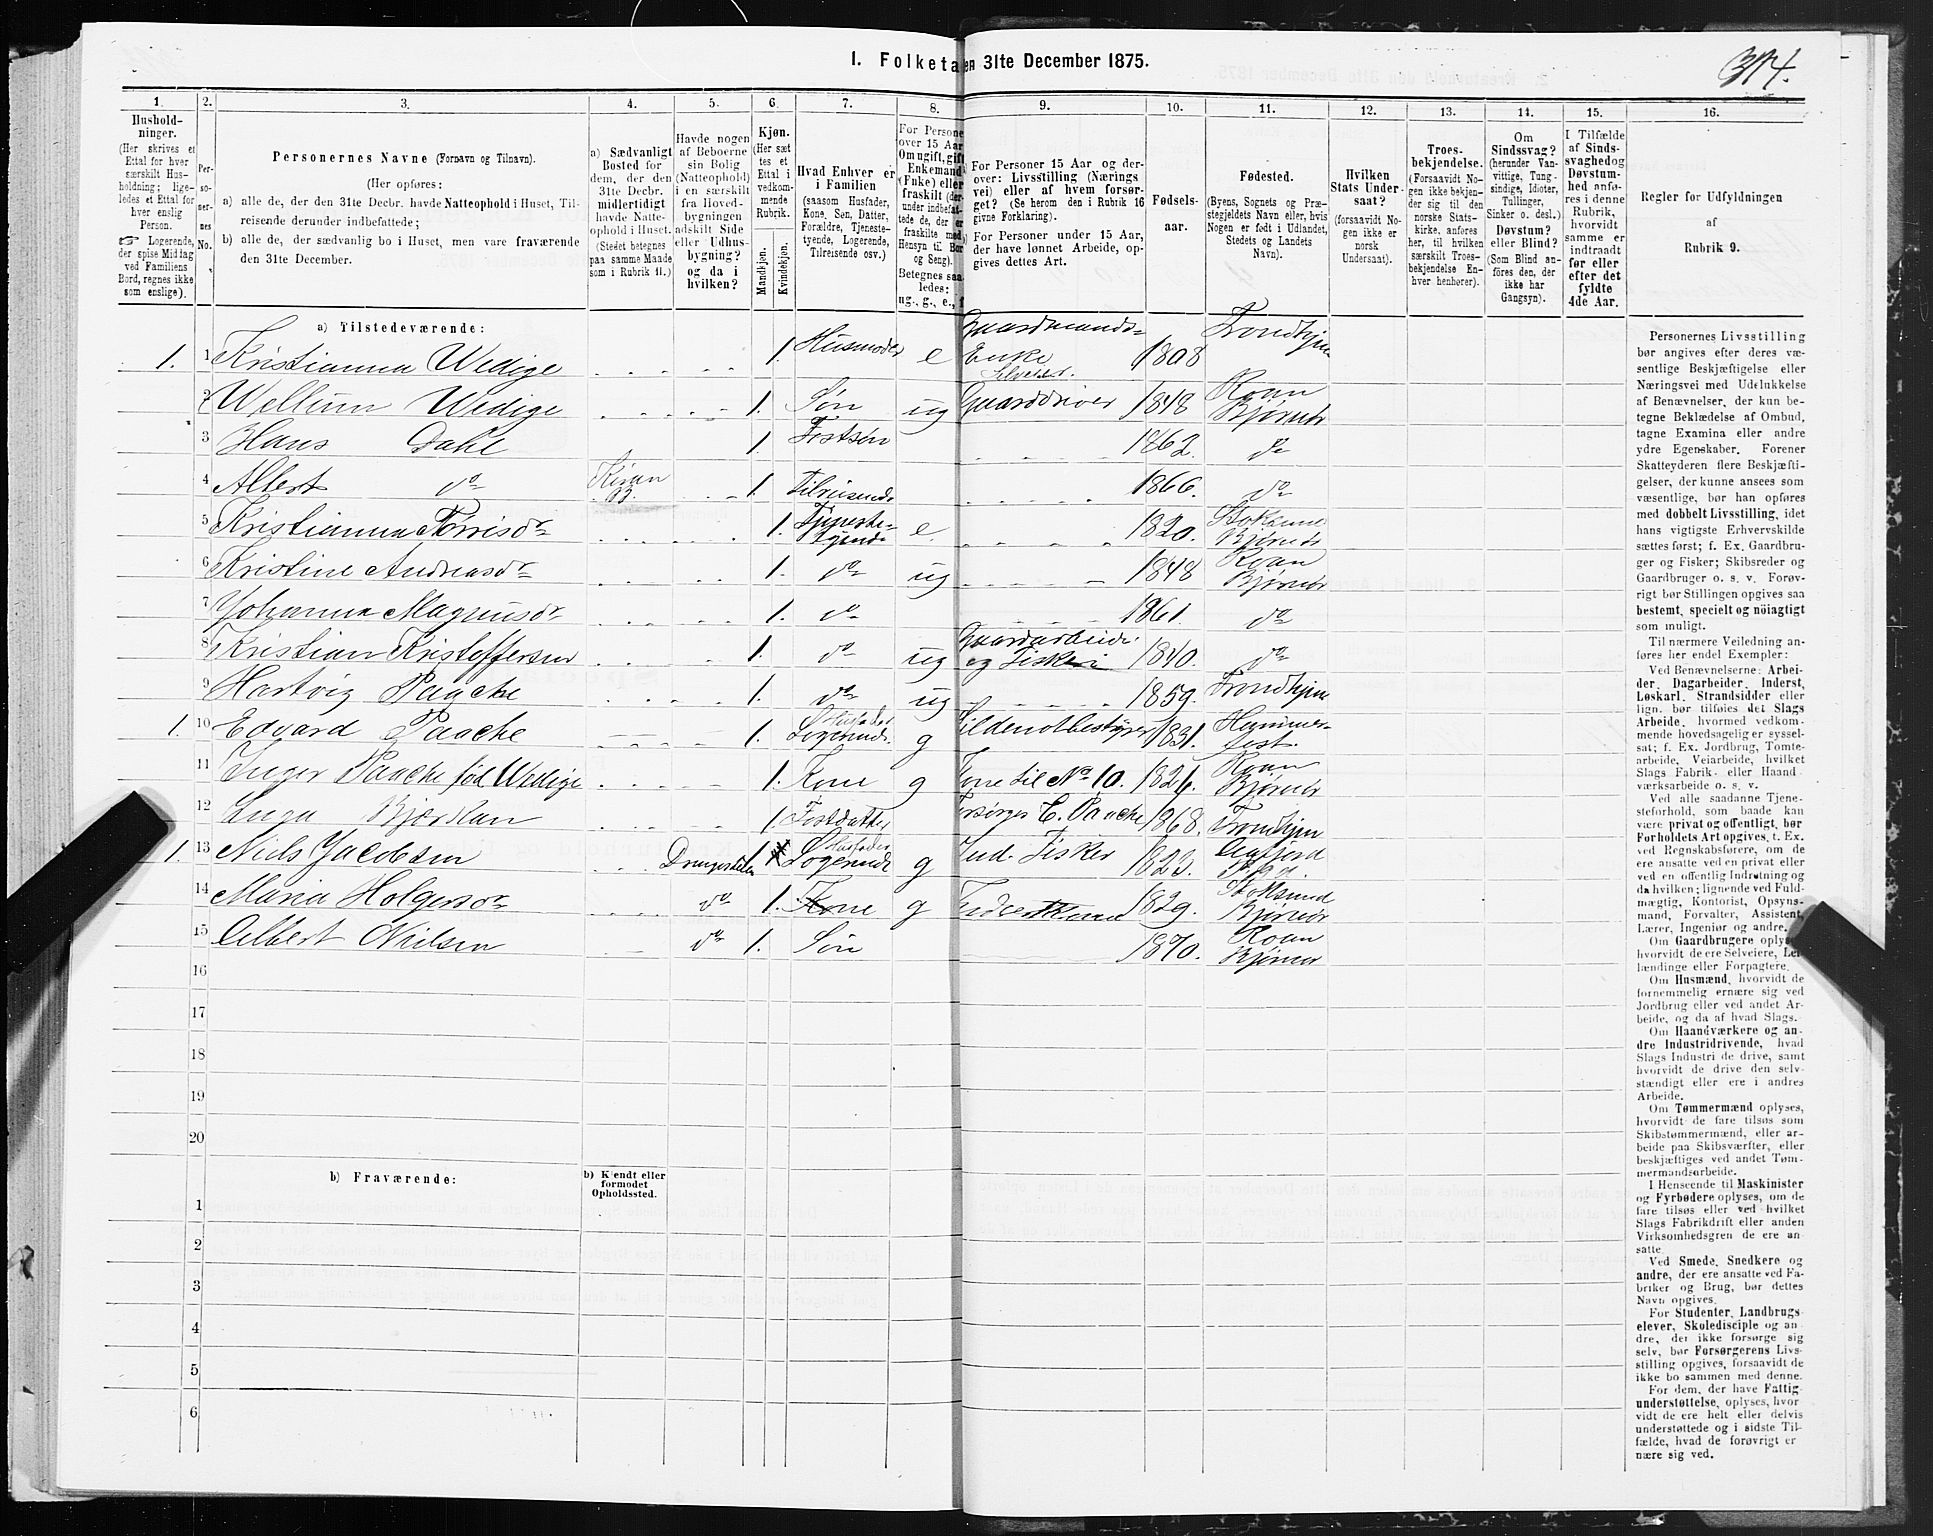 1. Folketallen 31te December 1875.
1. 2. 3. 4. 5. 6. 7. 8. 9. 10. 11. 12. 13. 14. 15. 16.
Hushold-
ninger.
(Her skrives et
Ettal for hver
særskilt Hus-
holdning; lige-
ledes et Ettal for
hver enslig
Person.
☞ Logerende,
der spise Middag
ved Familiens
Bord, regnes ikke
som enslige).
Per-
so-
ner-
nes
No.
Personernes Navne (Fornavn og Tilnavn).
(Her opføres:
a) alle de, der den 31te Decbr. havde Natteophold i Huset, Til-
reisende derunder indbefattede;
b) alle de, der sædvanlig bo i Huset, men vare fraværende
den 31te December.
a) Sædvanligt
Bosted for
dem, der den
31te Decbr.
midlertidigt
havde Natte-
ophold i Huset.
(Stedet betegnes
paa samme Maade
som i Rubrik 11.)
Havde nogen
af Beboerne
sin Bolig
(Natteophold)
i en særskilt
fra Hoved-
bygningen
adskilt Side
eller Udhus-
bygning?
og da i
hvilken?
Kjøn.
(Her sæt-
tes et
Ettal i
vedkom-
mende
Rubrik.
Mandkjøn.
Kvindekjøn.
Hvad Enhver er
i Familien
(saasom Husfader,
Kone, Søn, Datter,
Forældre, Tjeneste-
tyende, Logerende,
Tilreisende osv.)
For Persone
over 15 Aar
Om ugift, gift
Enkemand
(Enke) eller
fraskilt (der-
under indbefat-
tede de, der er
fraskilte med
Hensyn til Bor
og Seng).
Betegnes saa-
ledes:
ug., g., e., f
For Personer 15 Aar og der-
over: Livsstilling (Nærings
vei) eller af hvem forsør-
get? (Se herom den i Rubrik 16
givne Forklaring).
For Personer under 15 Aar,
der have lønnet Arbeide, op-
gives dettes Art.
Fødsels-
aar.
Fødested.
(Byens, Sognets og Præ-
stegjeldets Navn eller, hvis
Nogen er født i Udlandet,
Stedets og Landets
Navn).
Hvilken
Stats Under-
saat?
(forsaavidt No-
gen ikke er
norsk
Undersaat).
Troes-
bekjendelse.
(Forsaavidt No-
gen ikke bekjen-
der sig til den
norske Stats-
kirke, anføres
her, til hvilken
særskilt Troes-
bekjendelse En-
hver henhører).
Om
Sindssvag?
(herunder Van-
vittige, Tung-
sindige, Idioter,
Tullinger,
Sinker o. desl.)
Døvstum?
eller Blind?
(Som Blind an-
føres den, der
ikke har
Gangsyn).
I Tilfælde
af Sinds-
svaghed og
Døvstum-
hed anfø-
res i denne
Rubrik,
hvorvidt
samme er
indtraadt
før eller
efter det
fyldte
4de Aar.
Regler for Udfyldningen
af
Rubrik 9.
a) Tilstedeværende:
1. 1 Kristianna Wedige 1. Husmoder e Gaardmands- Enke Selveier. 1808 Trondhjem
2 Wellum Wedige 1. Søn ug Gaarddriver 1848 Roan Bjørnør
3 Hans Dahl 1. Fostsøn 1862. do
4 Albert do Kiran B. 1. Tilreisende 1866. do
5 Kristianna Tørrisdr 1. Tjeneste- tyende e. 1820. Stoksund Bjørnør
6 Kristine Andreasdr 1. do ug 1848 Roan Bjørnør
7 Johanna Magnusdr 1. do 1861. do
8 Kristian Kristoffersen 1. do ug Gaardarbeide og Fiskeri 1840. do
9 Hartvig Paache 1. do ug 1859. Trondhjem
1. 10 Edvard Paache 1. Husfader Logerende. g Sildenotbestyrer 1831. Hammer- fest.
11 Inger Paache fød Wedige 1. Kone g Kone til No 10. 1826. Roan Bjørnør
12 Inga Bjerkan 1. Fostdatter Forsørges E. Paache 1868. Trondhjem
1. 13 Niels Jacobsen 1 Husfader Logerende g Ind. Fisker 1823. Aafjord
14 Maria Holgersdr do 1. Kone g 1829. Stoksund Bjørnør
15 Albert Nielsen do 1. Søn 1870. Roan Bjørnør
16
17
18
19
20
b) Fraværende:
b) Kjendt eller
formodet
Opholdssted.
1
2
3
4
5
6
Personernes Livsstilling
bør angives efter deres væ-
sentlige Beskjæftigelse eller
Næringsvei med Udelukkelse
af Benævnelser, der kun be-
tegne Beklædelse af Ombud,
tagne Examina eller andre
ydre Egenskaber. Forener
Skatteyderen flere Beskjæfti-
gelser, der kunne ansees som
væsentlige, bør han opføres
med dobbelt Livsstilling, idet
hans vigtigste Erhvervskilde
sættes først; f. Ex. Gaardbru-
ger og Fisker; Skibsreder og
Gaardbruger o. s. v. Forøv-
rigt bør Stillingen opgives saa
bestemt, specielt og nöiagtigt
som muligt.
Til nærmere Veiledning an-
føres her endel Exempler:
Ved Benævnelserne: Arbei-
der, Dagarbeider, Inderst,
Løskarl, Strandsidder eller
lign. bør tilføies det Slags
Arbeide, hvormed vedkom-
mende hovedsagelig er syssel-
sat; f. Ex. Jordbrug, Tomte-
arbeide, Veiarbeide, hvilket
Slags Fabrik- eller Haand
værksarbeide o. s. v.
Ved alle saadanne Tjene-
steforhold, som baade kan
være privat og offentligt, bør
Forholdets Art opgives, t. Ex.
ved Regnskabsførere, om de
ere ansatte ved en privat eller
ved en offentlig Indretning og
da hvilken; lignende ved Fuld-
mægtig, Kontorist, Opsyns-
mand, Forvalter, Assistent,
Lærer, Ingeniør og andre.
Om Gaardbrugere oplyses
hvorvidt de ere Selveiere, Lei-
lændinge eller Forpagtere.
Om Husmænd, hvorvidt de
fornemmelig ernære sig ved
Jordbrug eller ved andet Ar-
beide, og da af hvad Slags.
Om Haandværkere og an-
dre Industridrivende, hvad
Slags Industri de drive, samt
hvorvidt de drive den selv-
stændigt eller ere i andres
Arbeide.
Om Tømmermænd oplyses,
hvorvidt de fare tilsøs som
Skibstømmermænd, eller ar-
beide paa Skibsværfter, eller
beskjæftiges ved andet Tøm-
mermandsarbeide.
I Henseende til Maskinister
og Fyrbødere oplyses, om de
fare tilsøs eller ved hvilket
Slags Fabrikdrift eller anden
Virksomhedsgren de ere an-
satte.
Ved Smede, Snedkere og
andre, der ere ansatte ved Fa-
briker og Brug, bør dettes
Navn opgives.
For Studenter, Landbrugs-
elever, Skoledisciple og an-
dre, der ikke forsørge sig
selv, bør Forsørgerens Livs-
stilling opgives, forsaavidt de
ikke bo sammen med denne.
For dem, der have Fattig-
understøttelse, oplyses, hvor
vidt de ere helt eller delvis
understøttede og i sidste Til-
fælde, hvad de forøvrigt er-
nære sig ved.